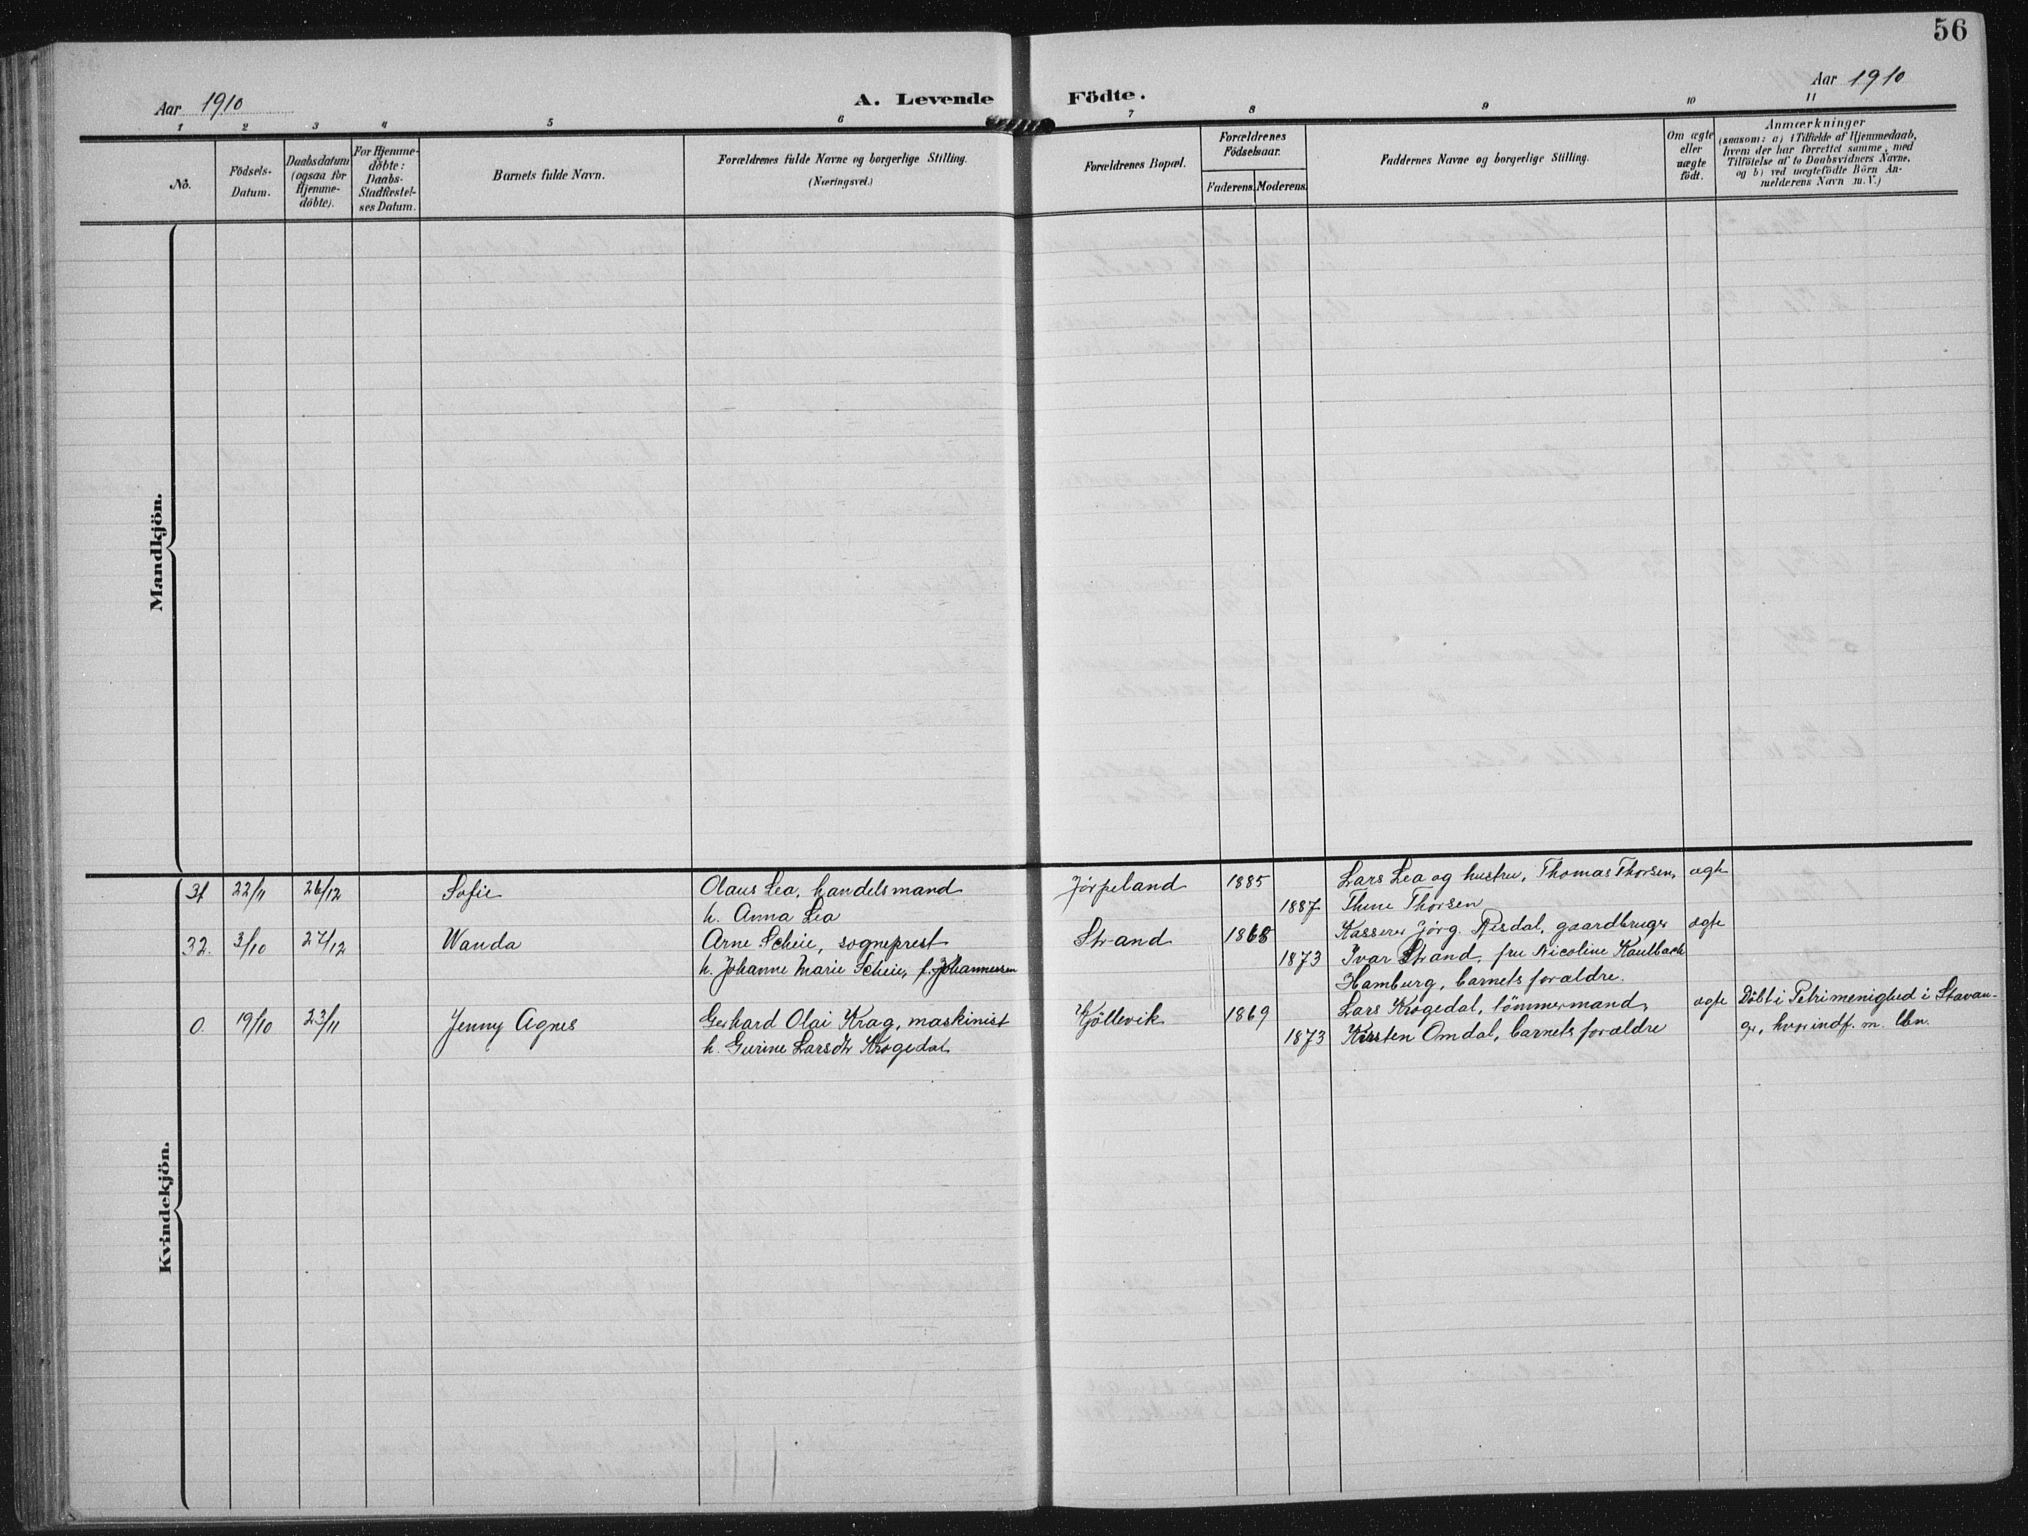 56
Aar 1910
A. Levende Födte.
Aar 1910
1 2 3 4 5 6 7 8 9 10 11
No.
Födsels-
Datum.
Daabsdatum
(ogsaa for
Hjemme-
döbte).
For Hjemme-
döbte:
Daabs-
Stadfæstel-
ses Datum.
Barnets fulde Navn.
Forældrenes fulde Navne og borgerlige Stilling.
(Næringsvei.)
Forældrenes Bopæl.
Forældrenes
Födselsaar.
Faderens. Moderens.
Faddernes Navne og borgerlige Stilling.
Om ægte
eller
uægte
födt.
Anmærkninger
(saasom: a) i Tilfælde af Hjemmedaab,
hvem der har forrettet samme, med
Tilföielse af to Daabsvidners Navne,
og b) ved uægtefödte Börn An-
melderens Navn m. V.)
Mandkjön.
Kvindekjön.
31 22/11 26/12 Sofie Olaus Lea, handelsmand Jørpeland 1885 Lars Lea og hustru, Thomas Thorsen, ægte
h. Anna Lea 1887 Thine Thorsen
32. 3/10 27/12 Wanda Arne Scheie, sogneprest Strand 1868 Kasserer Jörg. Risdal, gaardbruger ægte
h. Johanne Marie Scheie, f. Johannessen 1873 Ivar Strand, fru Nicoline Kaulbach
Hamburg, barnets forældre.
0. 19/10 23/11 Jenny Agnes Gerhard Olai Krag, maskinist Kjöllevik 1869 Lars Krogedal, tömmermand, ægte Döbt i Petri menighed i Stavan-
h. Gurine Larsdtr Krogedal 1873 Kirsten Omdal, barnets forældre ger, hvor indf. m. lbn.